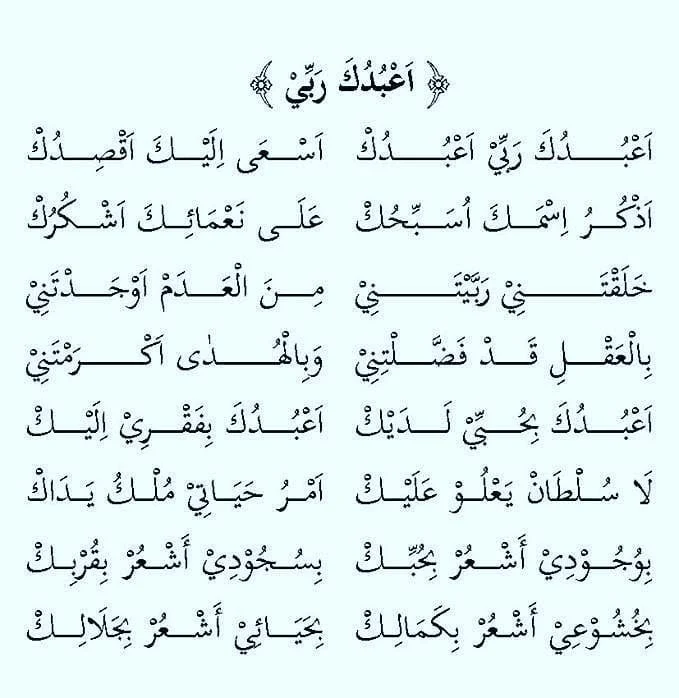 ﴿ اَعْبُدُكَ رَبِّيْ ﴾
اَعْبُدُكَ رَبِّيْ اَعْبُدُكْ اَسْعَى اِلَيْكَ اَقْصِدُكْ
اَذْكُرُ اِسْمَكَ اُسَبِّحُكْ عَلَى نَعْمَائِكَ اَشْكُرُكْ
خَلَقْتَنِيْ رَبَّيْتَنِيْ مِنَ الْعَدَمْ اَوْجَدْتَنِيْ
بِالْعَقْلِ قَدْ فَضَّلْتِنِيْ وَبِالْهُدٰى اَكْرَمْتَنِيْ
اَعْبُدُكَ بِحُبِّيْ لَدَيْكْ اَعْبُدُكَ بِفَقْرِيْ اِلَيْكْ
لَا سُلْطَانْ يَعْلُوْ عَلَيْكْ اَمْرُ حَيَاتِيْ مُلْكُ يَدَاكْ
بِوُجُوْدِيْ أَشْعُرْ بِحُبِّكْ بِسُجُوْدِيْ أَشْعُرْ بِقُرْبِكْ
بِخُشُوْعِيْ أَشْعُرْ بِكَمَالِكْ بِحَيَائِيْ أَشْعُرْ بِجَلَالِكْ